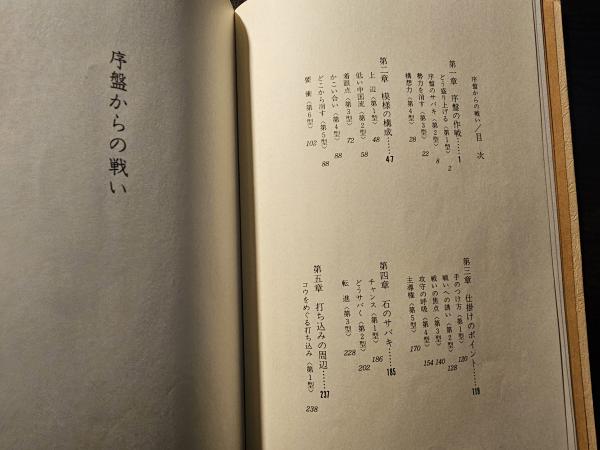 序盤からの戦い
序盤からの戦い/目 次
第一章 序盤の作戦……1
どう盛り上げる〈第1型〉 2
序盤のサバキ〈第2型〉 8
勢力を消す〈第3型〉 22
構想力〈第4型〉 28
第二章 模様の構成……47
上 辺〈第1型〉 48
低い中国流〈第2型〉 58
着眼点〈第3型〉 72
かこい合い〈第4型〉 88
どこから消す〈第5型〉 88
要 衝〈第6型〉 102
第三章 仕掛けのポイント……119
手のつけ方〈第1型〉 120
戦いへの誘い〈第2型〉 128
戦いの焦点〈第3型〉 140
攻守の呼吸〈第4型〉 154
主導権〈第5型〉 170
第四章 石のサバキ……185
チャンス〈第1型〉 186
どうサバく〈第2型〉 202
転 進〈第3型〉 228
第五章 打ち込みの周辺……237
コウをめぐる打ち込み〈第1型〉 238